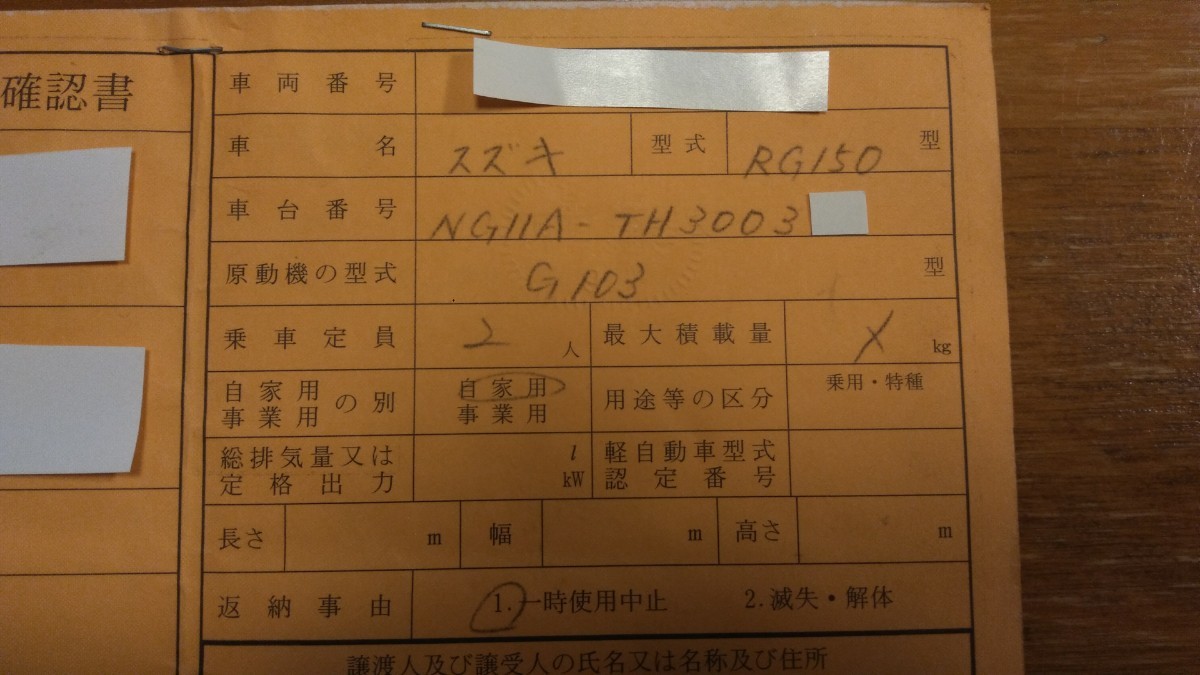 確認書
車両番号
車名 スズキ 型式 RG150 型
車台番号 NG11A-TH3003
原動機の型式 G103 型
乗車定員 2 人 最大積載量 X kg
自家用 事業用 の別 自家用 事業用 用途等の区分 乗用・特種
総排気量又は定格出力 l kW 軽自動車型式認定番号
長さ m 幅 m 高さ m
返納事由 1.一時使用中止 2.滅失・解体
譲渡人及び譲受人の氏名又は名称及び住所